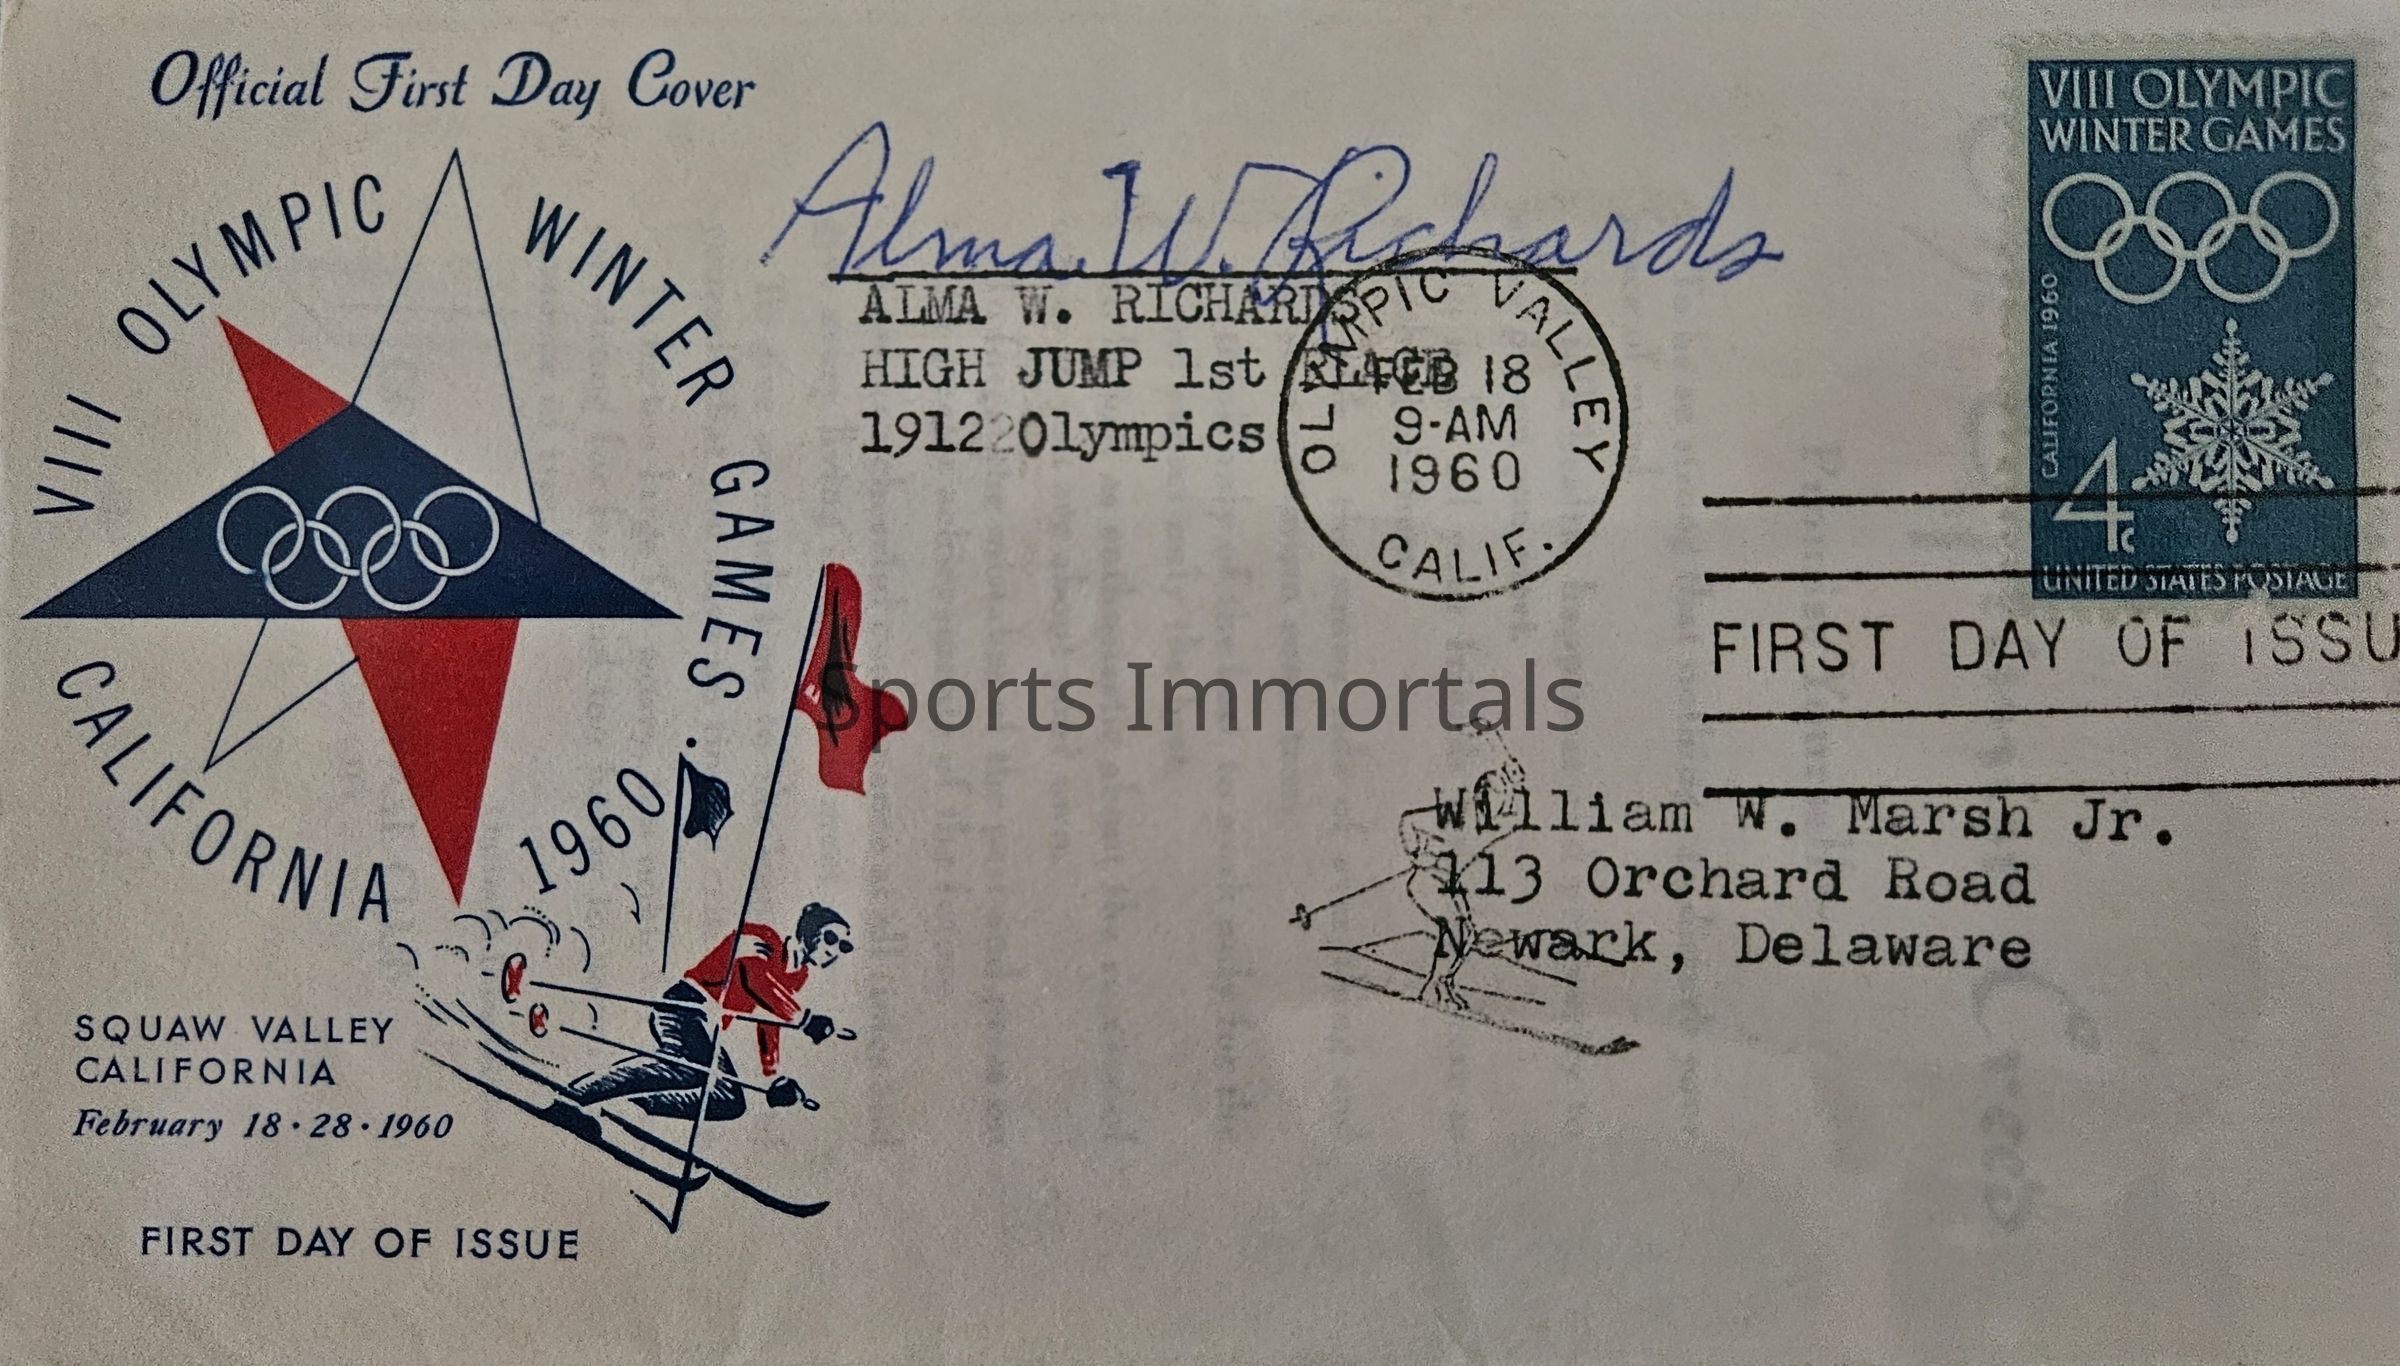 Official First Day Cover
VIII OLYMPIC WINTER GAMES · 1960
CALIFORNIA
SQUAW VALLEY
CALIFORNIA
February 18 · 28 · 1960
FIRST DAY OF ISSUE
Alma W. Richards
ALMA W. RICHARDS
HIGH JUMP 1st PLACE
1912 Olympics
OLYMPIC VALLEY
FEB 18
9-AM
1960
CALIF.
VIII OLYMPIC
WINTER GAMES
CALIFORNIA 1960
4c
UNITED STATES POSTAGE
FIRST DAY OF ISSU
Sports Immortals
William W. Marsh Jr.
113 Orchard Road
Newark, Delaware